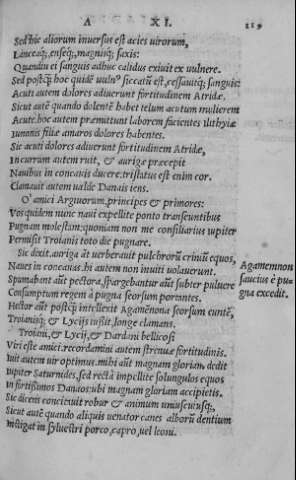 Λ XI. 119
Sed hic aliorum inuersus est acies uirorum,
Lanceaq;, enseq;, magnisq; saxis:
Quandiu et sanguis adhuc calidus exiuit ex uulnere.
Sed postq̃ hoc quidē uuln⁹ siccatū est, cessauitq; sanguis:
Acuti autem dolores adiuerunt fortitudinem Atridæ.
Sicut autē quando dolentē habet telum acutum mulierem
Acute. hoc autem præmittunt laborem facientes ilithyiæ
Iunonis filiæ amaros dolores habentes.
Sic acuti dolores adiuerunt fortitudinem Atridæ,
In currum autem ruit, & aurigæ præcepit
Nauibus in concauis ducere: tristatus est enim cor.
Clamauit autem ualde Danais iens.
O' amici Argiuorum, principes & primores:
Vos quidem nunc naui expellite ponto transeuntibus
Pugnam molestam: quoniam non me consiliarius iupiter
Permisit Troianis toto die pugnare.
Sic dixit. auriga āt uerberauit pulchrorū criniū equos,
Naues in concauas. hi autem non inuiti uolauerunt.
Spumabant aūt pectora, spargebantur aūt subter puluere
Consumptum regem à pugna seorsum portantes.
Hector aūt postq̃ intellexit Agamēnona seorsum euntē,
Troianisq; & Lycijs iussit, longe clamans.
Troiani, & Lycij, & Dardani bellicosi
Viri este amici. recordamini autem strenuæ fortitudinis.
Iuit autem uir optimus. mihi aūt magnam gloriam dedit
Iupiter Saturnides. sed rectà impellite solungulos equos
In fortissimos Danaos: ubi magnam gloriam accipietis.
Sic dicens conciruit robur & animum uniuscuiusq;.
Sicut autē quando aliquis uenator canes alborū dentium
Instigat in syluestri porco, capro, uel leoni.
Agamemnon
saucius è pu
gna excedit.